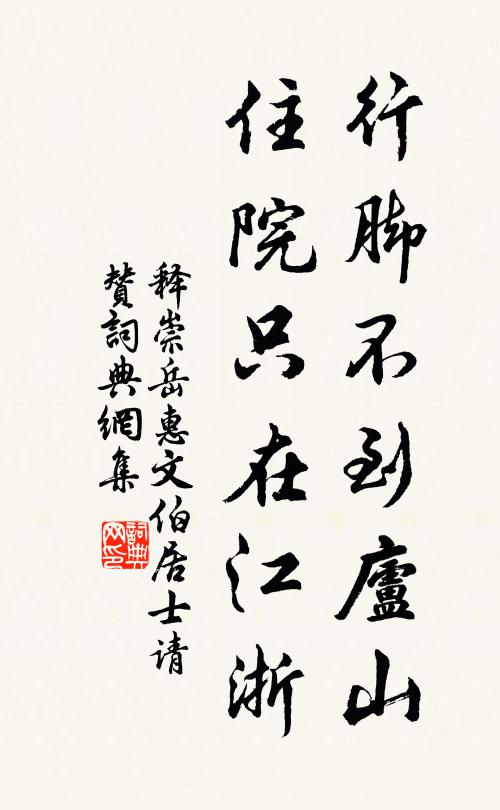 行脚不到廬山
住院只在江浙
释崇岳惠文伯居士请
赞詞典網集
詞典网印